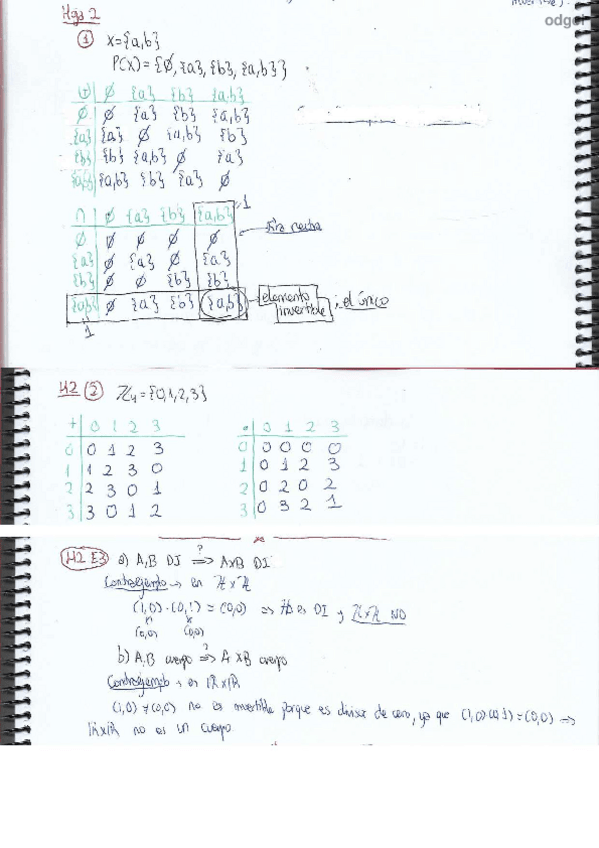 odgci
Hoja 2
① X={a,b}
P(X)={∅,{a},{b},{a,b}}
⊕ ∅ {a} {b} {a,b}
∅ ∅ {a} {b} {a,b}
{a} {a} ∅ {a,b} {b}
{b} {b} {a,b} ∅ {a}
{a,b} {a,b} {b} {a} ∅
∩ ∅ {a} {b} {a,b} 1
∅ ∅ ∅ ∅ ∅
{a} ∅ {a} ∅ {a}
{b} ∅ ∅ {b} {b}
{a,b} ∅ {a} {b} {a,b} elemento invertible; el único
1
H2 ② ℤ₄={0,1,2,3}
+ 0 1 2 3
0 0 1 2 3
1 1 2 3 0
2 2 3 0 1
3 3 0 1 2
· 0 1 2 3
0 0 0 0 0
1 0 1 2 3
2 0 2 0 2
3 0 3 2 1
H2 E3 a) A,B DI ⇒? AxB DI
Contraejemplo → en ℤxℤ
(1,0)·(0,1)=(0,0) ⇒ ℤ es DI y ℤxℤ NO
(0,0) (0,0)
b) A,B cuerpo ⇒? AxB cuerpo
Contraejemplo → en ℝxℝ
(1,0)≠(0,0) no es invertible porque es divisor de cero, ya que (1,0)(0,1)=(0,0) ⇒
ℝxℝ no es un cuerpo.